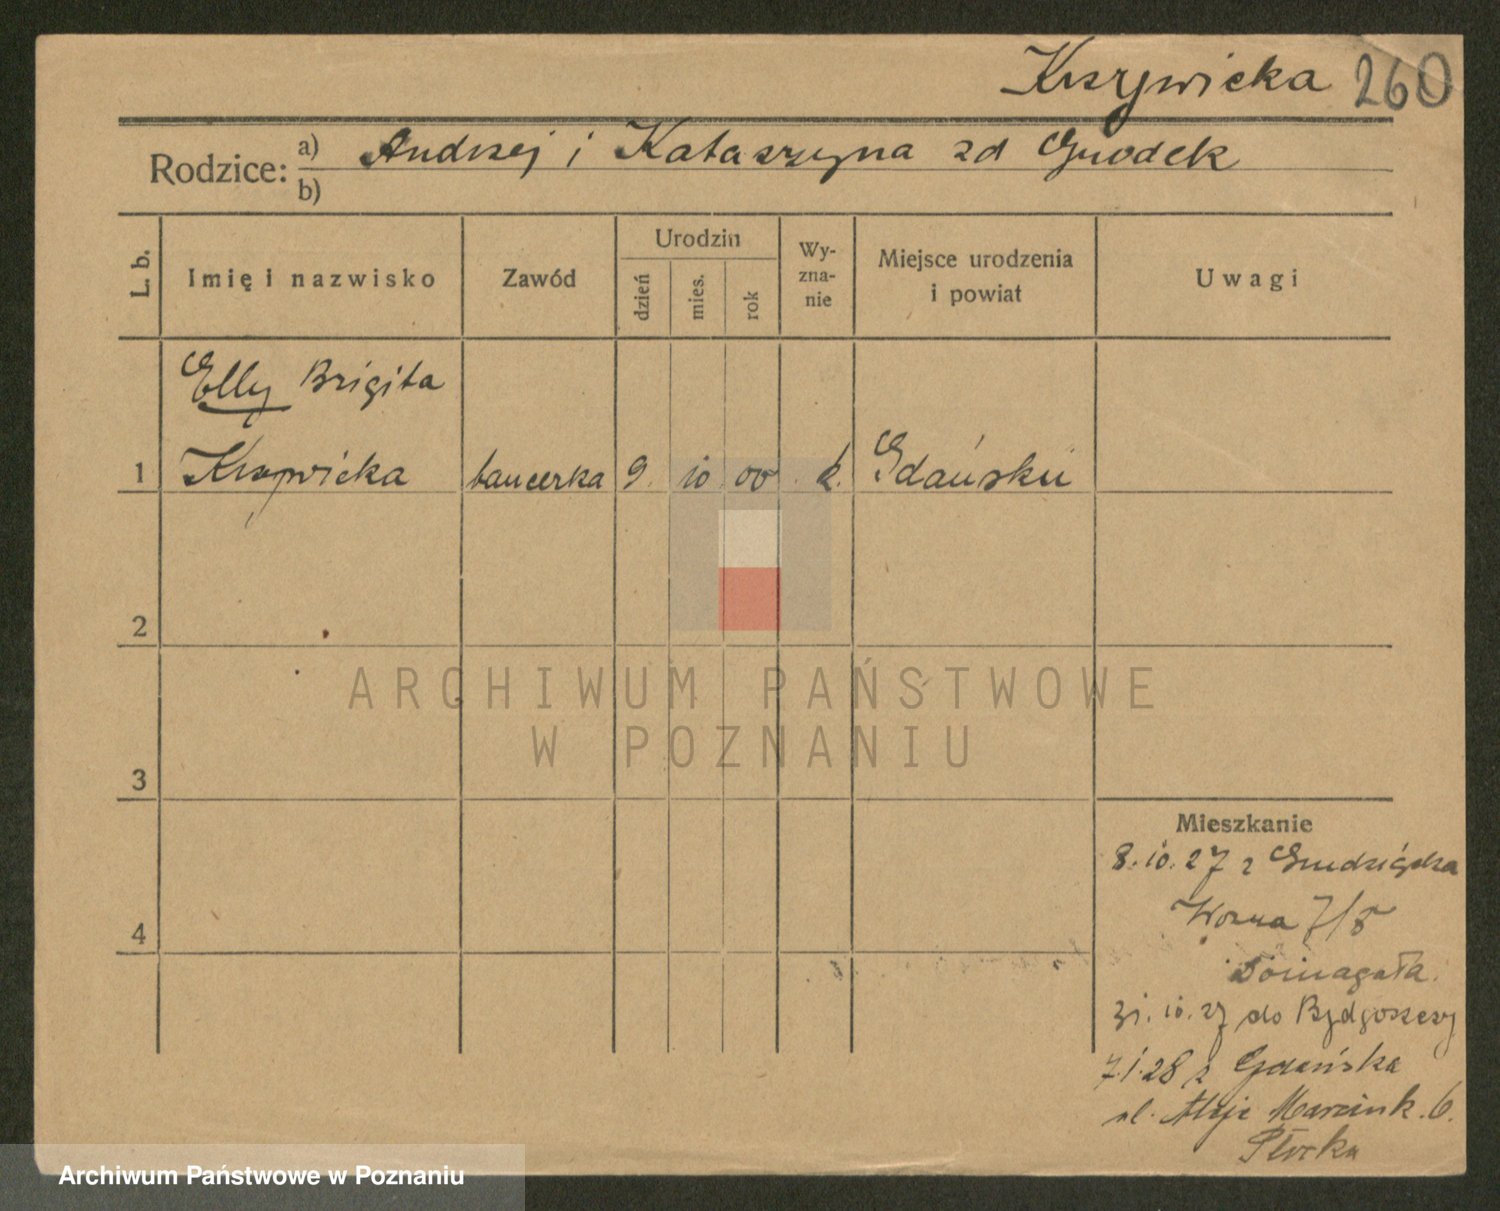 Krzywicka 260
Rodzice: a) Andrzej i Katarzyna zd Gwodek
b)
L. b.
Imię i nazwisko
Zawód
Urodzin
dzień
mies.
rok
Wy-
zna-
nie
Miejsce urodzenia
i powiat
Uwagi
Elly Brigita
1 Krzywicka tancerka 9. 10 00 k. Gdańsku
2
3
4
Mieszkanie
8.10.27 z Grudziądza
Wozna 7/8
Domagała.
31.10.27 do Bydgoszczy
7.1.28 z Gdańska
ul. Aleje Marcink. 6.
Płocka
ARCHIWUM PAŃSTWOWE
W POZNANIU
Archiwum Państwowe w Poznaniu